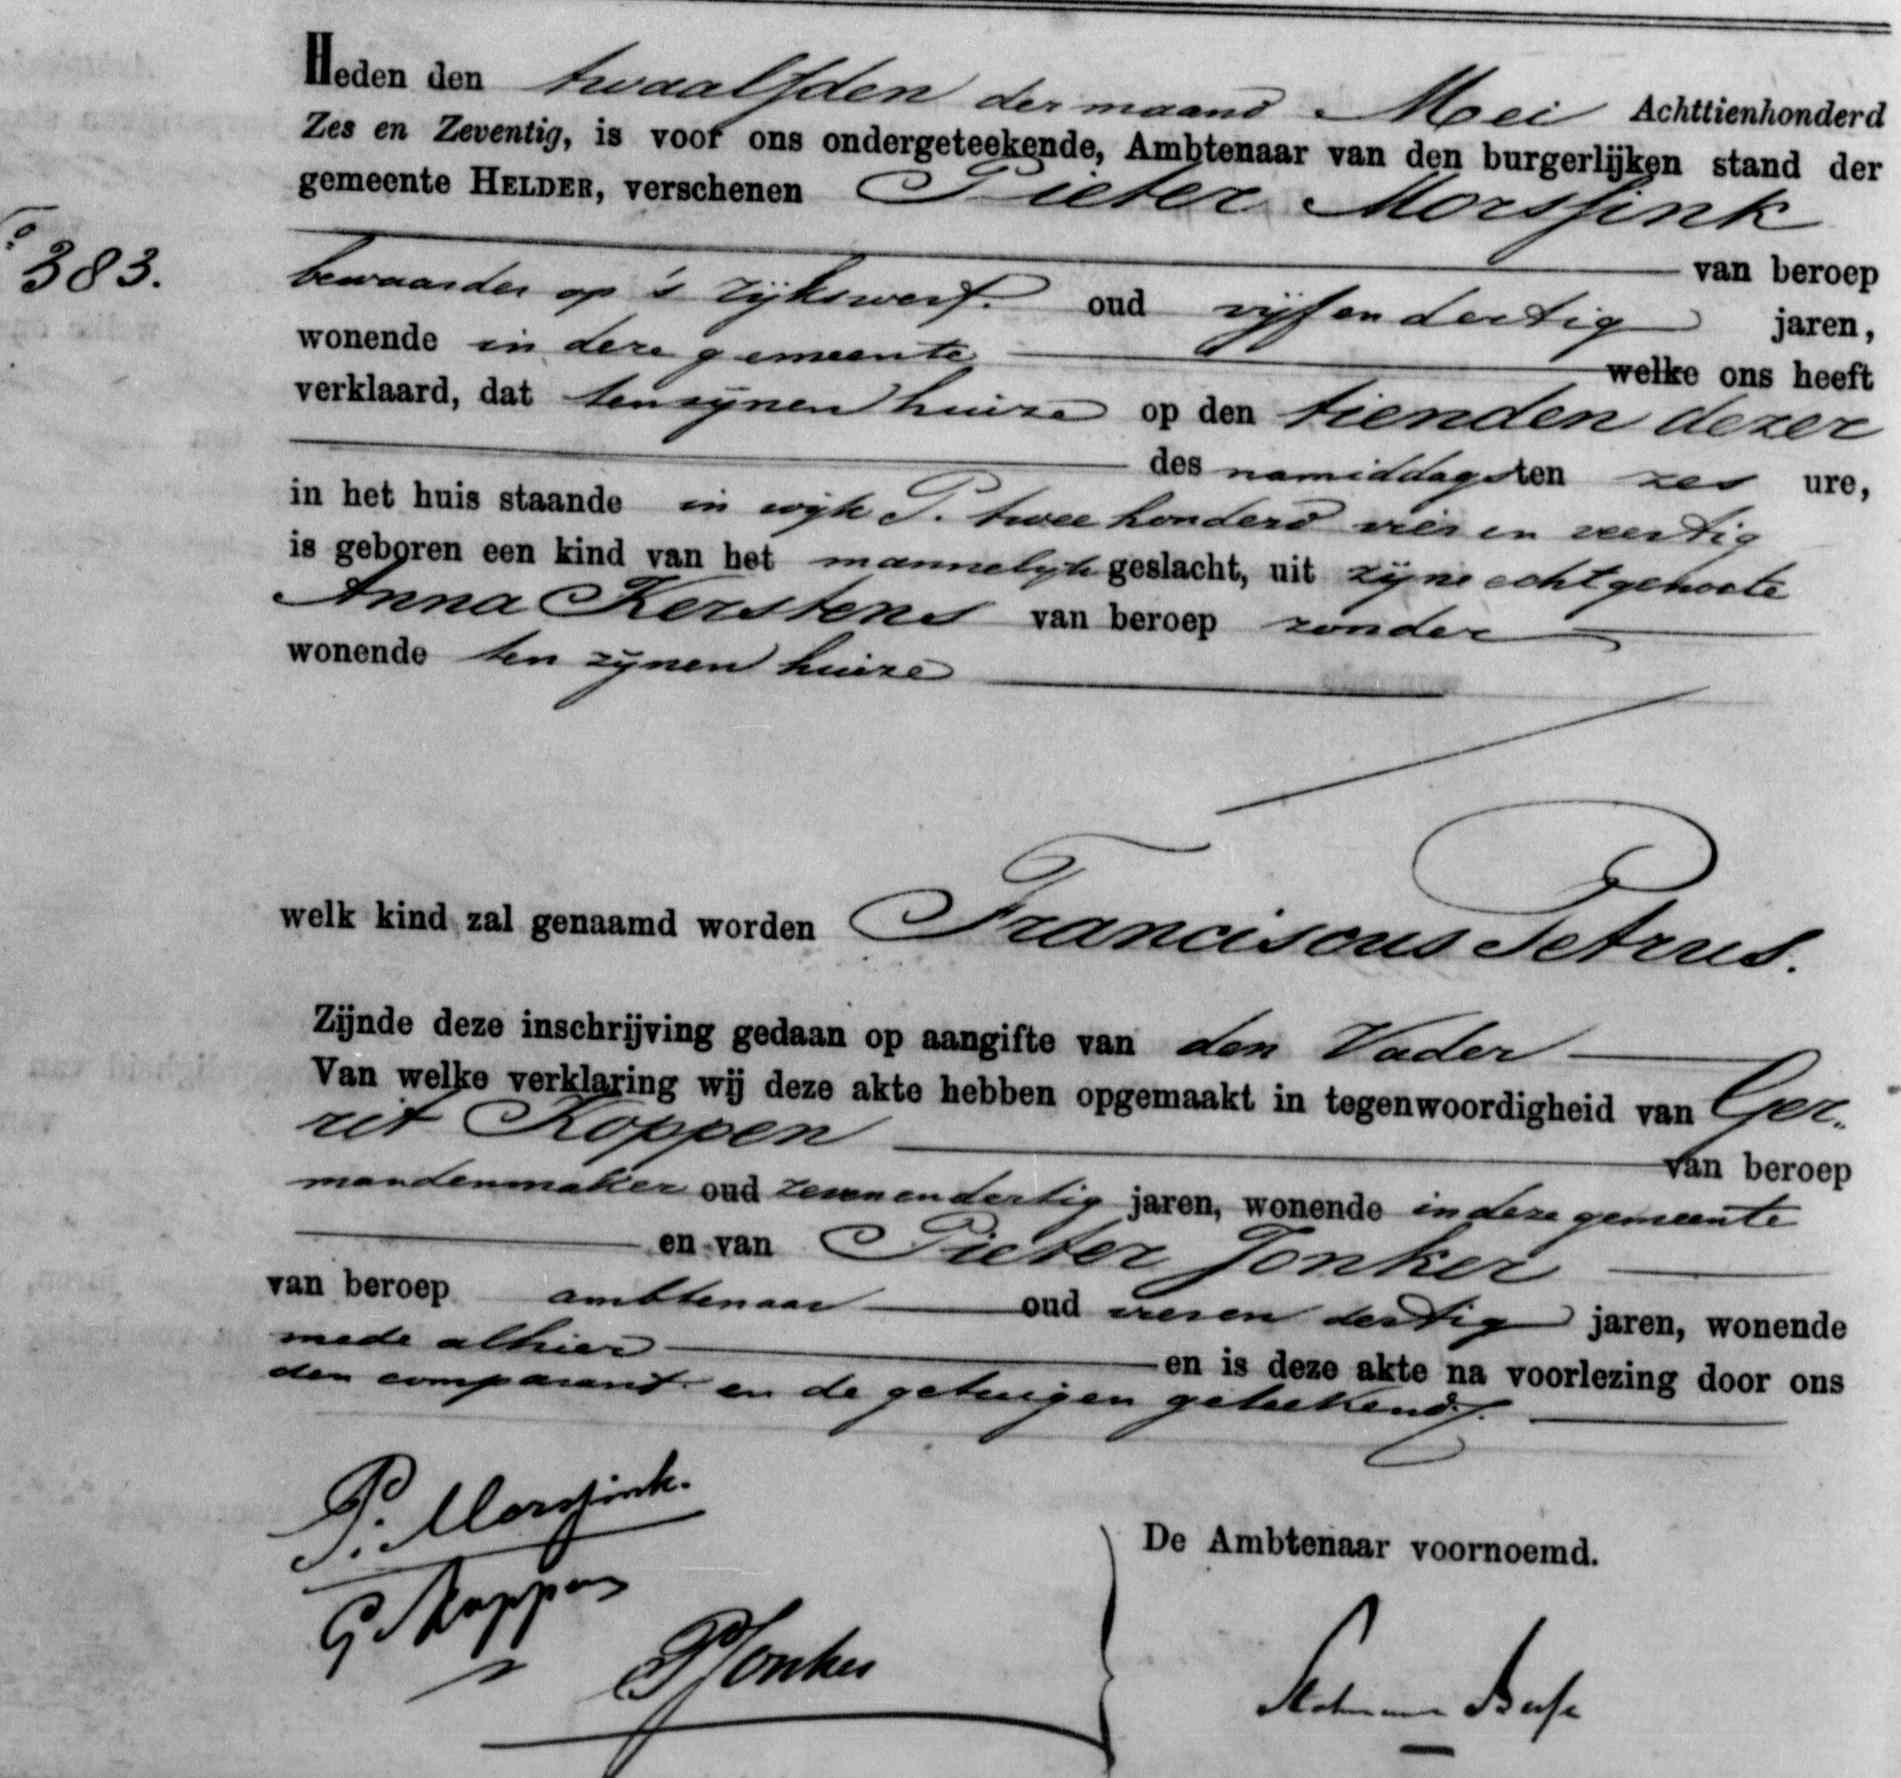 Heden den twaalfden der maand Mei Achttienhonderd
Zes en Zeventig, is voor ons ondergeteekende, Ambtenaar van den burgerlijken stand der
gemeente HELDER, verschenen Pieter Morssink
van beroep
383.
bewaarder op 's rijkswerf. oud vijf en dertig jaren,
wonende in deze gemeente welke ons heeft
verklaard, dat ten zijnen huize op den tienden dezer
des namiddags ten zes ure,
in het huis staande in wijk P. twee honderd vier en veertig
is geboren een kind van het mannelijk geslacht, uit zijne echtgenoote
Anna Kerstens van beroep zonder
wonende ten zijnen huize
welk kind zal genaamd worden Franciscus Petrus.
Zijnde deze inschrijving gedaan op aangifte van den Vader
Van welke verklaring wij deze akte hebben opgemaakt in tegenwoordigheid van Ger-
rit Koppen van beroep
mandenmaker oud zeven en dertig jaren, wonende in deze gemeente
en van Pieter Jonker
van beroep ambtenaar oud vier en dertig jaren, wonende
mede alhier en is deze akte na voorlezing door ons
den comparant en de getuigen geteekend.
P. Morssink.
G. Koppen
PJonker
De Ambtenaar voornoemd.